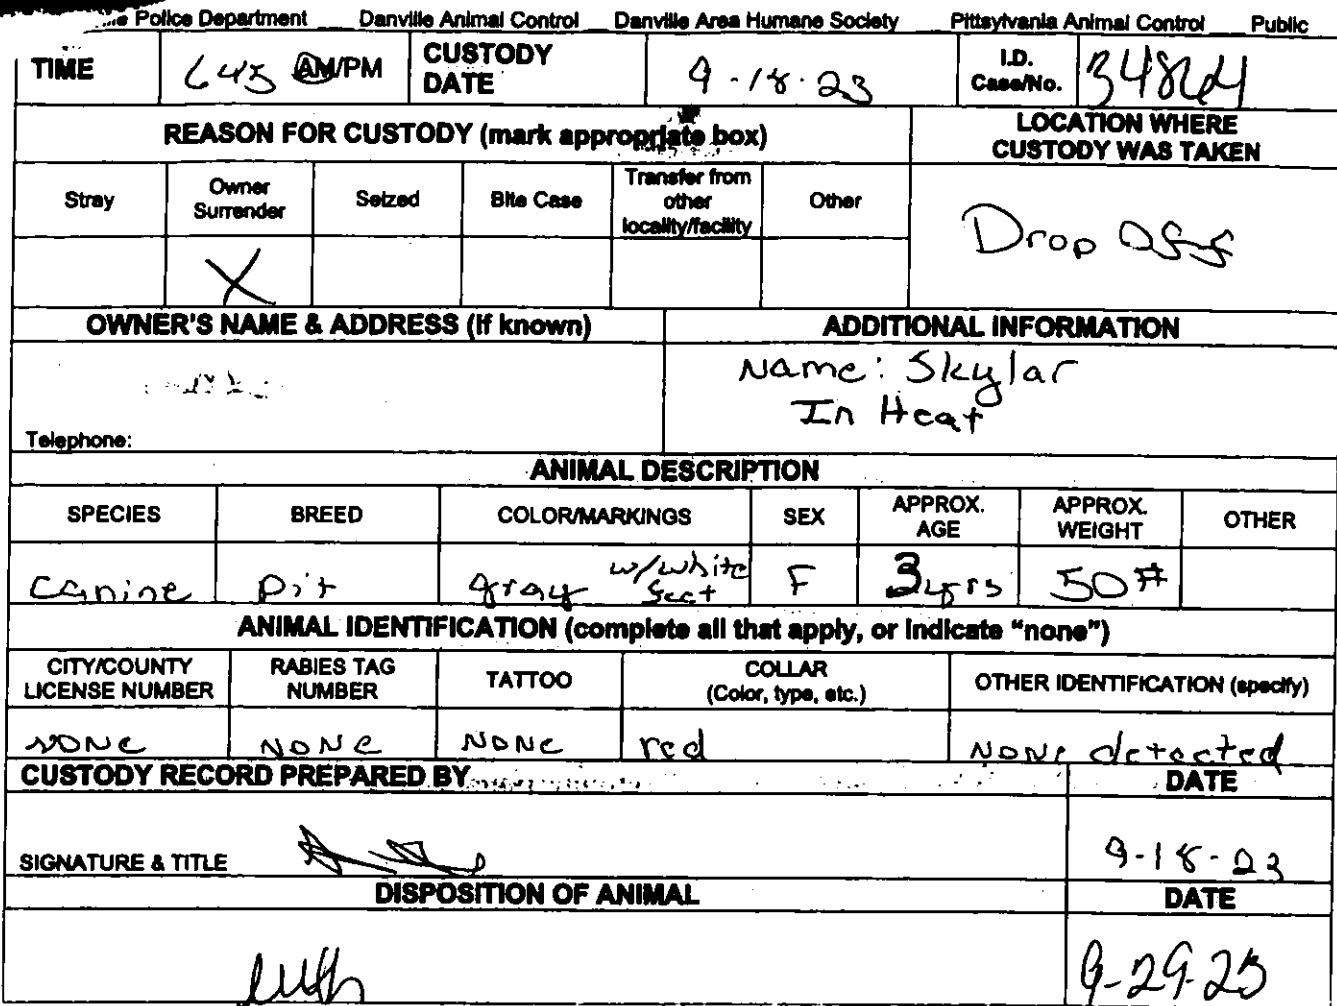 Police Department Danville Animal Control Danville Area Humane Society Pittsylvania Animal Control Public
TIME 645 AM/PM CUSTODY DATE 9-18-23 I.D. Case/No.
REASON FOR CUSTODY (mark appropriate box) LOCATION WHERE CUSTODY WAS TAKEN
Stray Owner Surrender Seized Bite Case Transfer from other locality/facility Other
X
Drop Off
OWNER'S NAME & ADDRESS (if known) ADDITIONAL INFORMATION
Name: Skylar
In Heat
Telephone:
ANIMAL DESCRIPTION
SPECIES BREED COLOR/MARKINGS SEX APPROX. AGE APPROX. WEIGHT OTHER
Canine Pit gray w/white feet F 3yrs 50#
ANIMAL IDENTIFICATION (complete all that apply, or indicate "none")
CITY/COUNTY LICENSE NUMBER RABIES TAG NUMBER TATTOO COLLAR (Color, type, etc.) OTHER IDENTIFICATION (specify)
NONE NONE NONE red NONE detected
CUSTODY RECORD PREPARED BY DATE
SIGNATURE & TITLE 9-18-23
DISPOSITION OF ANIMAL DATE
9-29-23